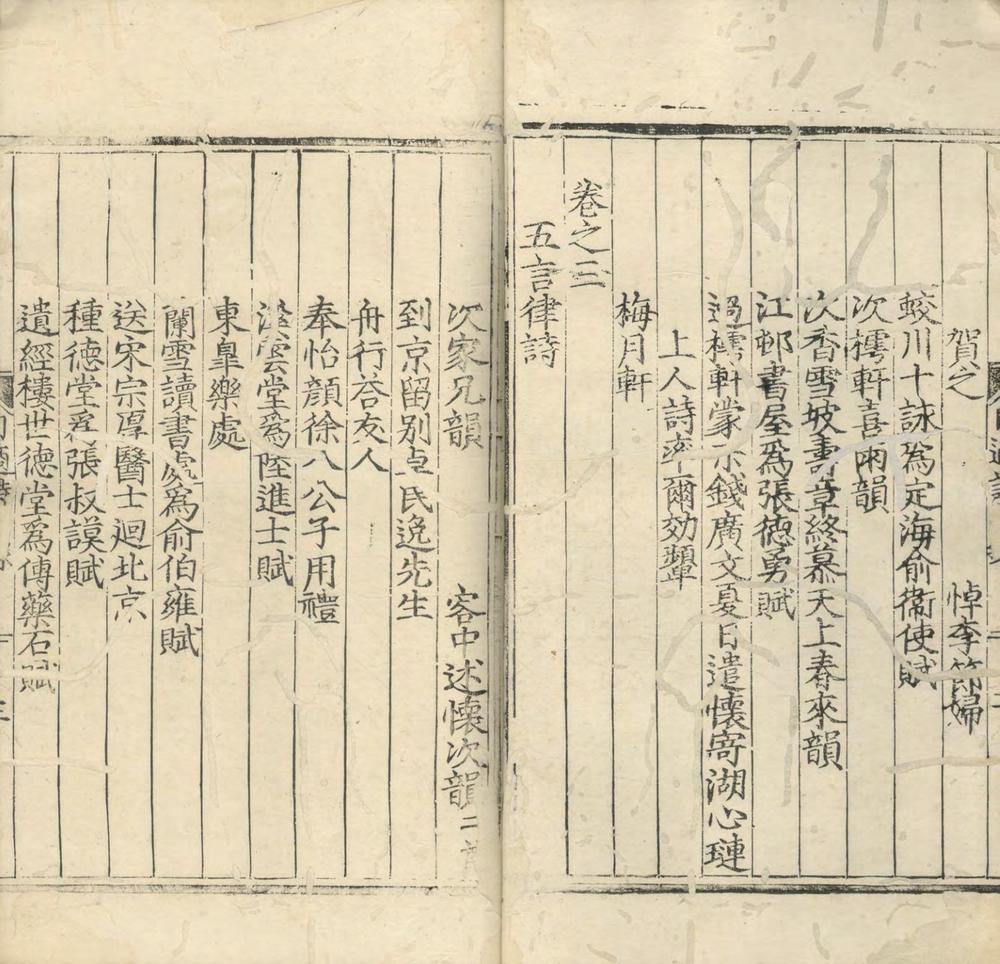 賀之 悼李節婦
蛟川十詠為定海俞衞使賦
次樗軒喜雨韻
次香雪坡壽章終慕天上春來韻
江邨書屋為張德勇賦
過樗軒蒙示錢廣文夏日遣懷寄湖心璉
上人詩率爾効顰
梅月軒
卷之三
五言律詩
次家兄韻 客中述懷次韻二首
到京留別卓民逸先生
舟行荅友人
奉怡顔徐八公子用禮
雲堂爲陸進士賦
東臯樂處
闌雪讀書處爲俞伯雍賦
送宋宗厚醫士迴北京
種德堂爲張叔謨賦
遺經樓世德堂爲傅藥石賦